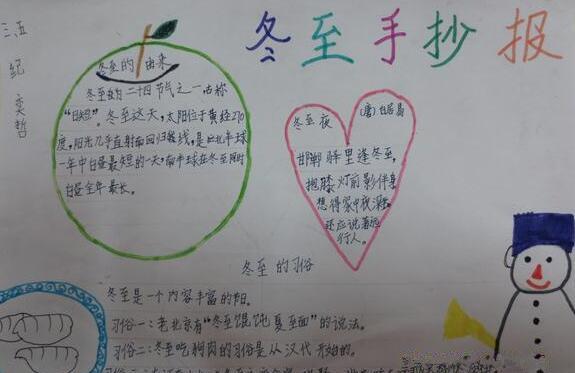 冬至手抄报
三五
纪奕哲
冬至的由来
冬至的二十四节气之一,古称
"日短"冬至这天,太阳位于黄经270
度,阳光几乎直射南回归线,是北半球
一年中白昼最短的一天,南半球在冬至同时
白昼全年最长。
冬至夜 (唐)白居易
邯郸驿里逢冬至,
抱膝灯前影伴身
想得家中夜深坐,
还应说着远
行人。
冬至的习俗
冬至是一个内容丰富的节。
习俗一:老北京有"冬至馄饨夏至面"的说法。
习俗二:冬至吃狗肉的习俗是从汉代开始的。